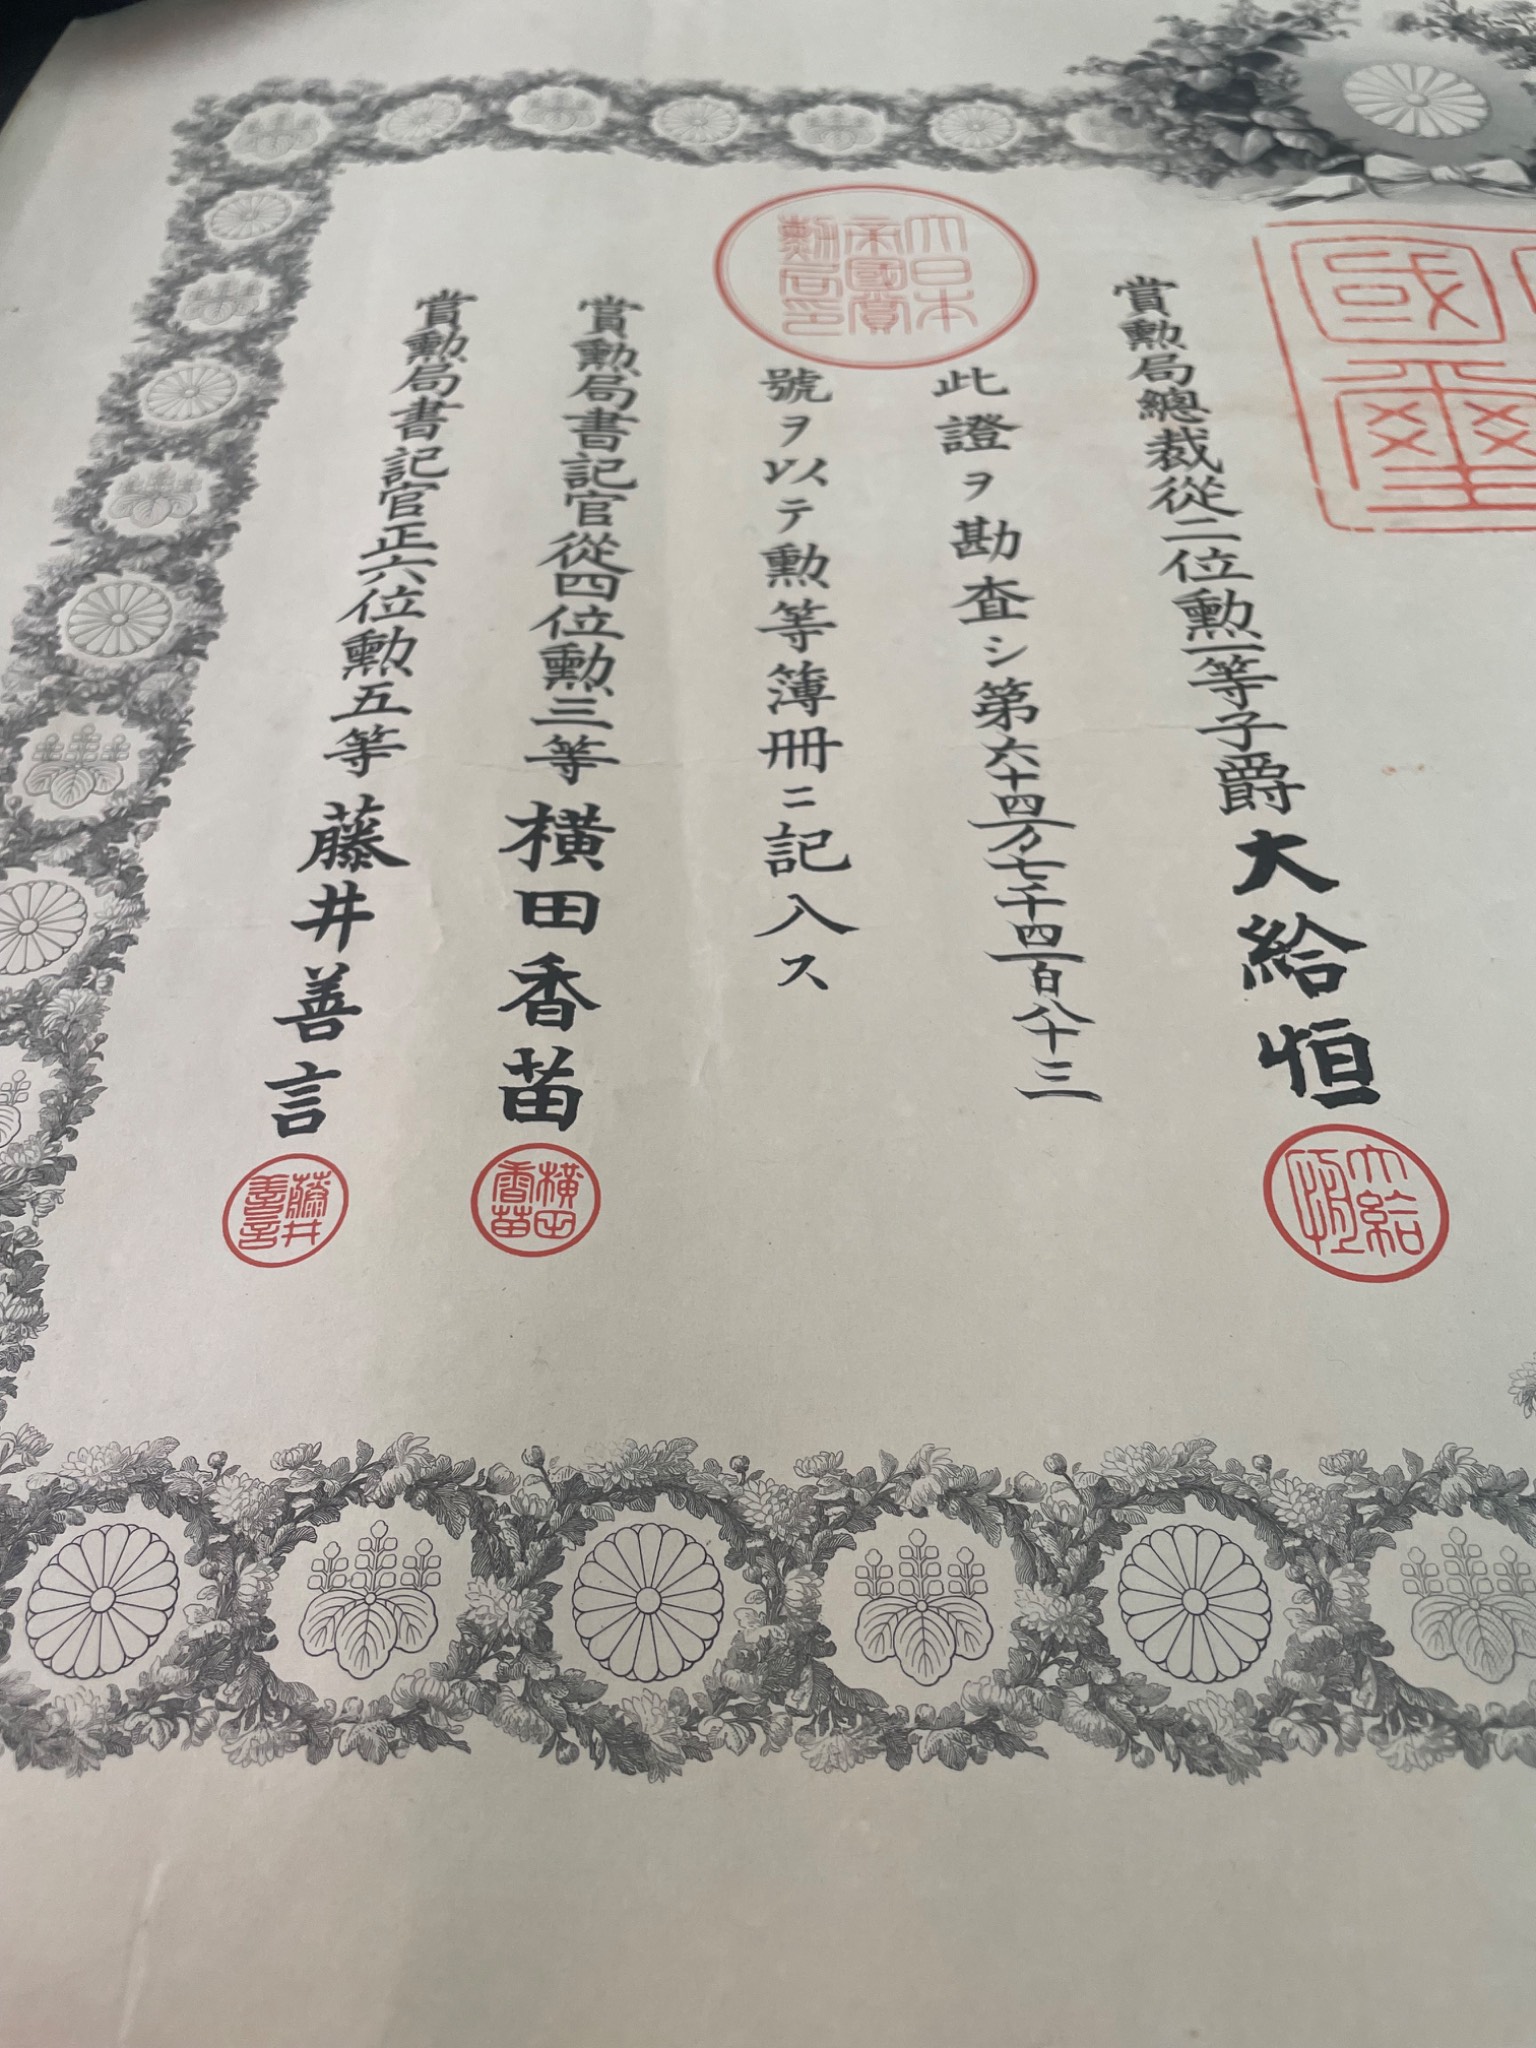 國璽
賞勲局總裁從二位勲一等子爵大給恒
大給恒
大日本帝國賞勲局印
此證ヲ勘査シ第六十四万七千四百八十三
號ヲ以テ勲等簿冊ニ記入ス
賞勲局書記官從四位勲三等橫田香苗
橫田香苗
賞勲局書記官正六位勲五等藤井善言
藤井善言